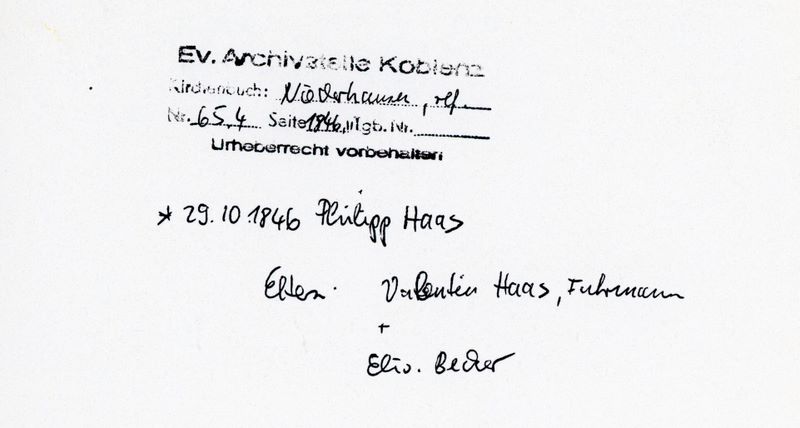 Ev. Archivstelle Koblenz
Kirchenbuch: Niederhausen, ref.
Nr. 65,4 Seite 1846, lfgb. Nr.
Urheberrecht vorbehalten
* 29.10.1846 Philipp Haas
Eltern: Valentin Haas, Fuhrmann
+
Elis. Becker